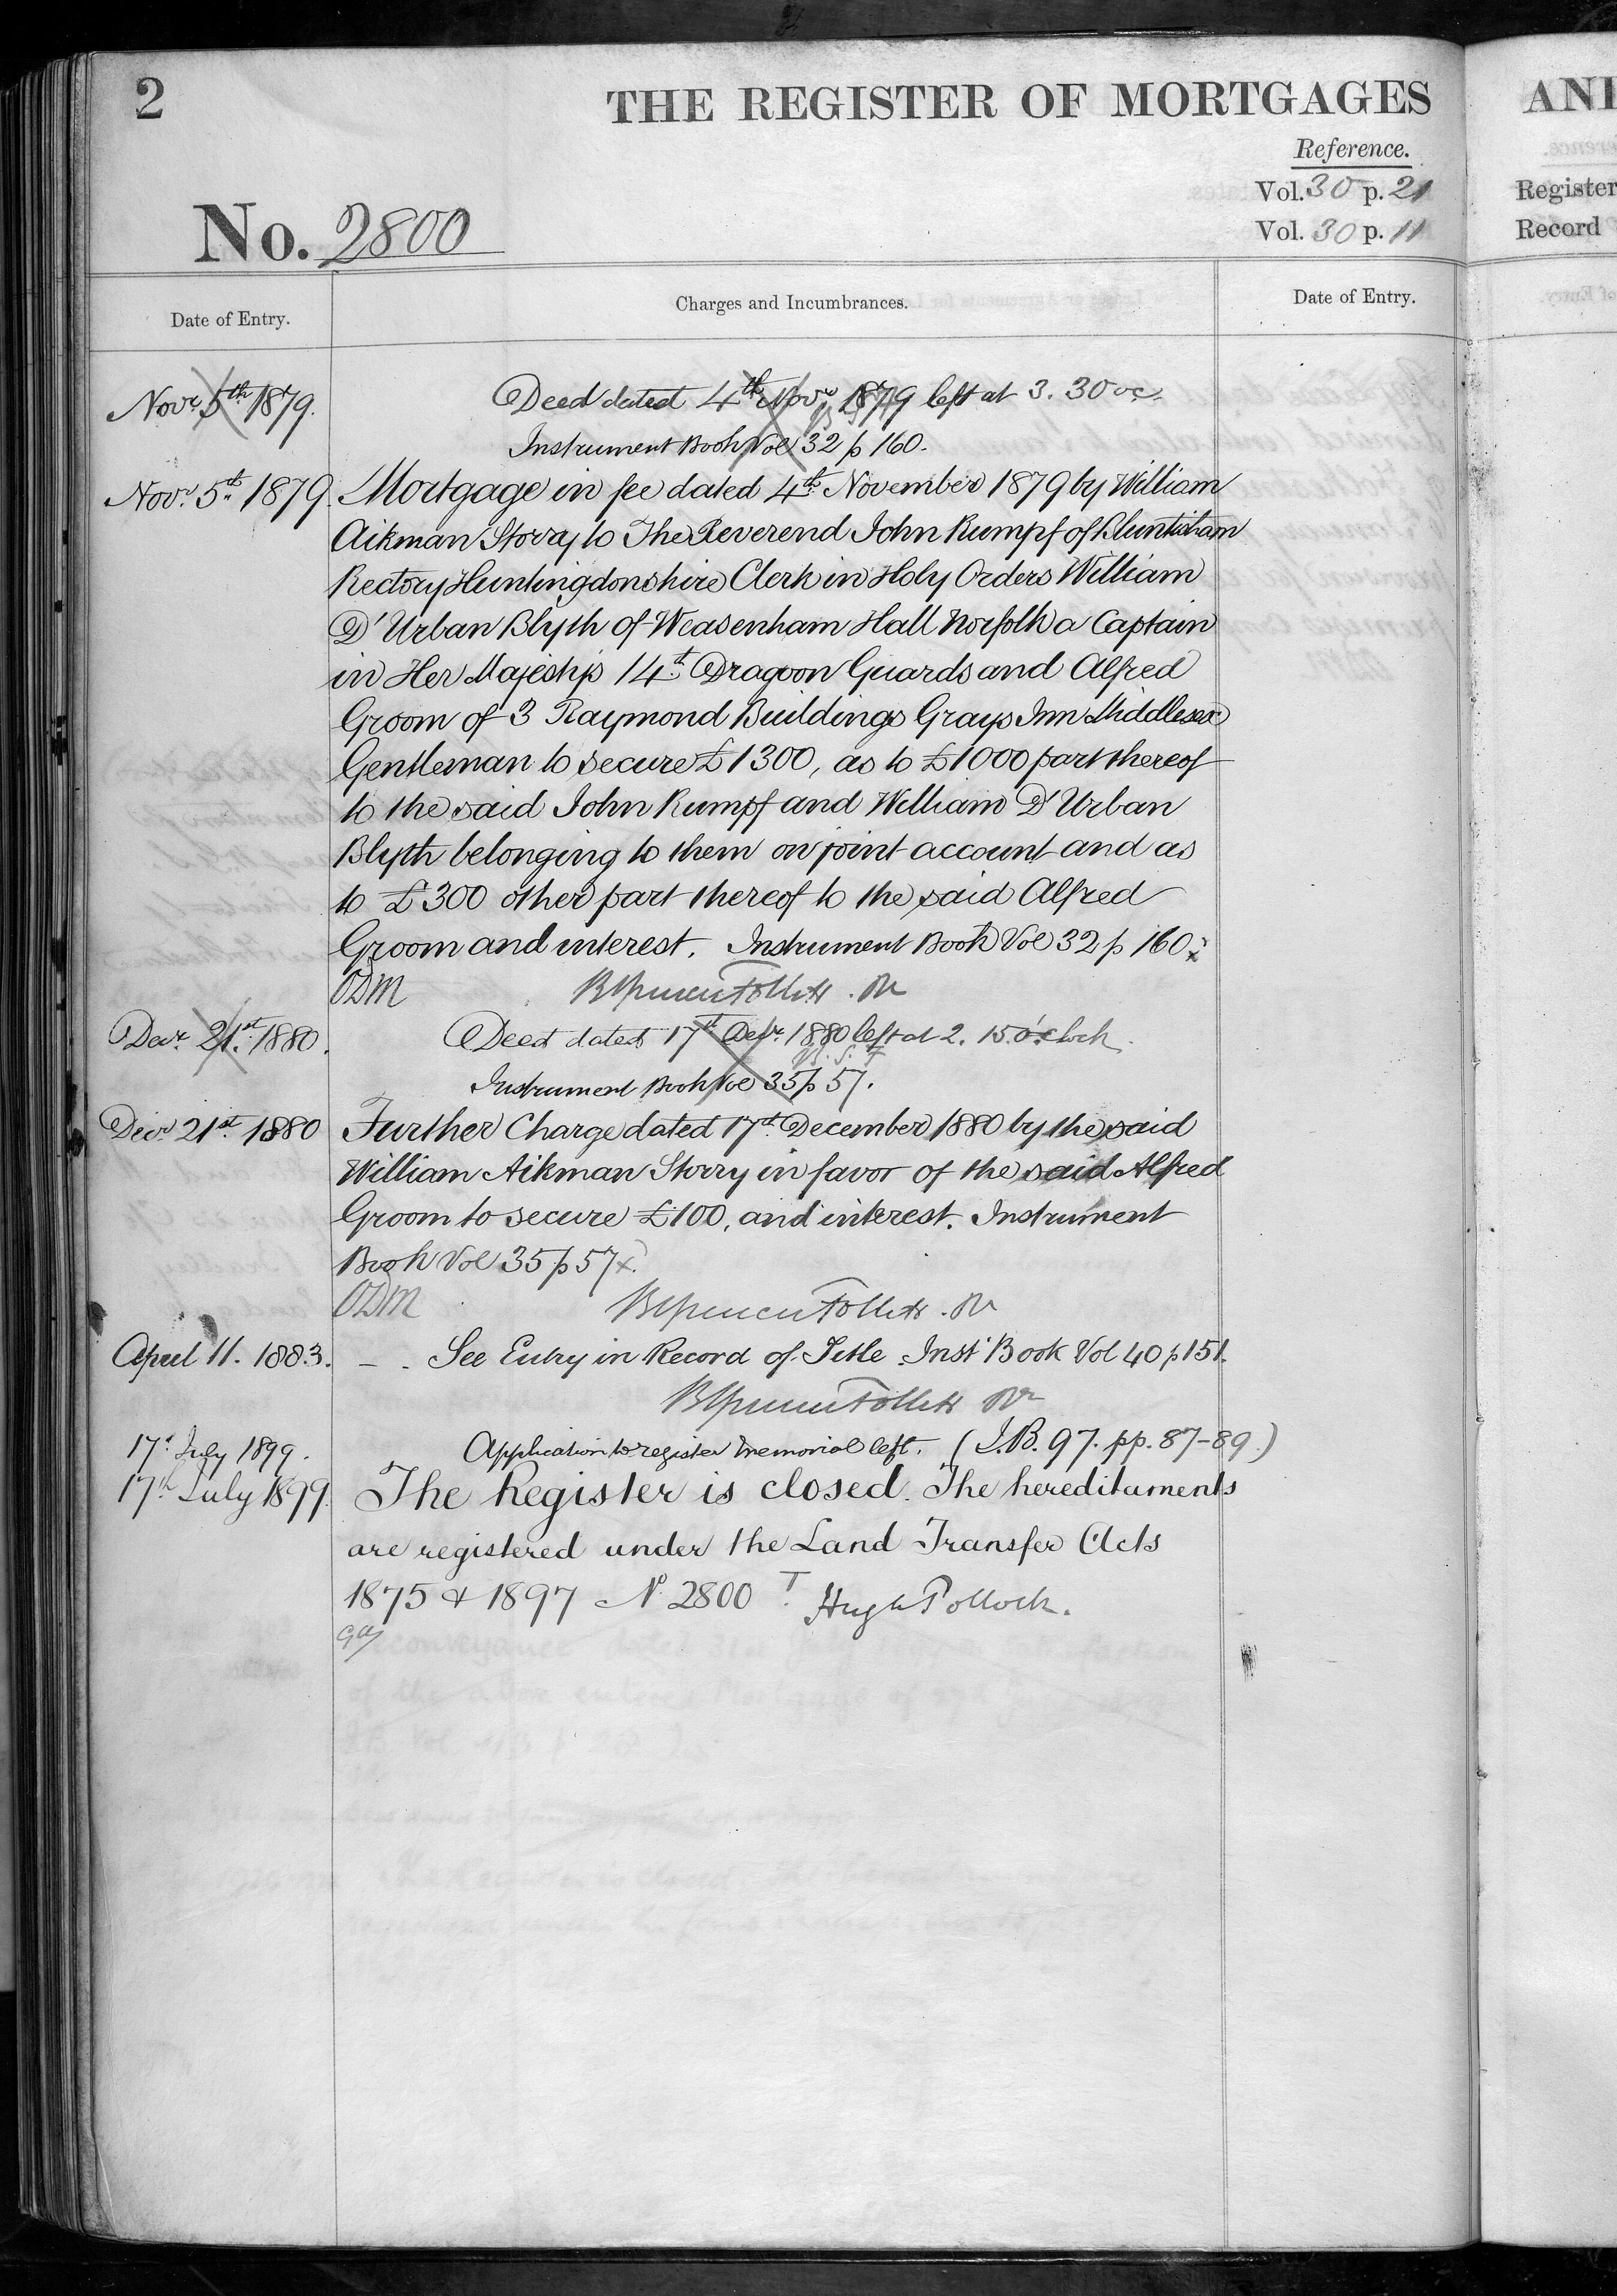 2
THE REGISTER OF MORTGAGES
Reference.
Vol. 30 p. 21
Vol. 30 p. 11
No. 2800
Date of Entry.
Charges and Incumbrances.
Date of Entry.
Novr. 5th 1879.
Deed dated 4th Novr 1879 left at 3.30 oc.
Instrument Book Vol 32 p 160.
Novr. 5th 1879. Mortgage in fee dated 4th November 1879 by William
Aikman Storry to The Reverend John Rumpf of Bluntisham
Rectory Huntingdonshire Clerk in Holy Orders William
D'Urban Blyth of Weasenham Hall Norfolk a Captain
in Her Majesty's 14th Dragoon Guards and Alfred
Groom of 3 Raymond Buildings Grays Inn Middlesex
Gentleman to secure £1300, as to £1000 part thereof
to the said John Rumpf and William D'Urban
Blyth belonging to them on joint account and as
to £300 other part thereof to the said Alfred
Groom and interest. Instrument Book Vol 32 p 160
ODM
Decr. 21st 1880.
Deed dated 17th Decr. 1880 left at 2.15 o'clock.
Instrument Book Vol 35 p 57.
Decr 21st 1880 Further Charge dated 17th December 1880 by the said
William Aikman Storry in favor of the said Alfred
Groom to secure £100, and interest. Instrument
Book Vol 35 p 57
ODM
April 11. 1883. - . See Entry in Record of Title Inst Book Vol 40 p 151.
17th July 1899. Application to register memorial left. (I.B. 97. pp. 87-89.)
17th July 1899. The Register is closed. The hereditaments
are registered under the Land Transfer Acts
1875 & 1897 No. 2800 T. Hugh Pollock.
ANI
Register
Record